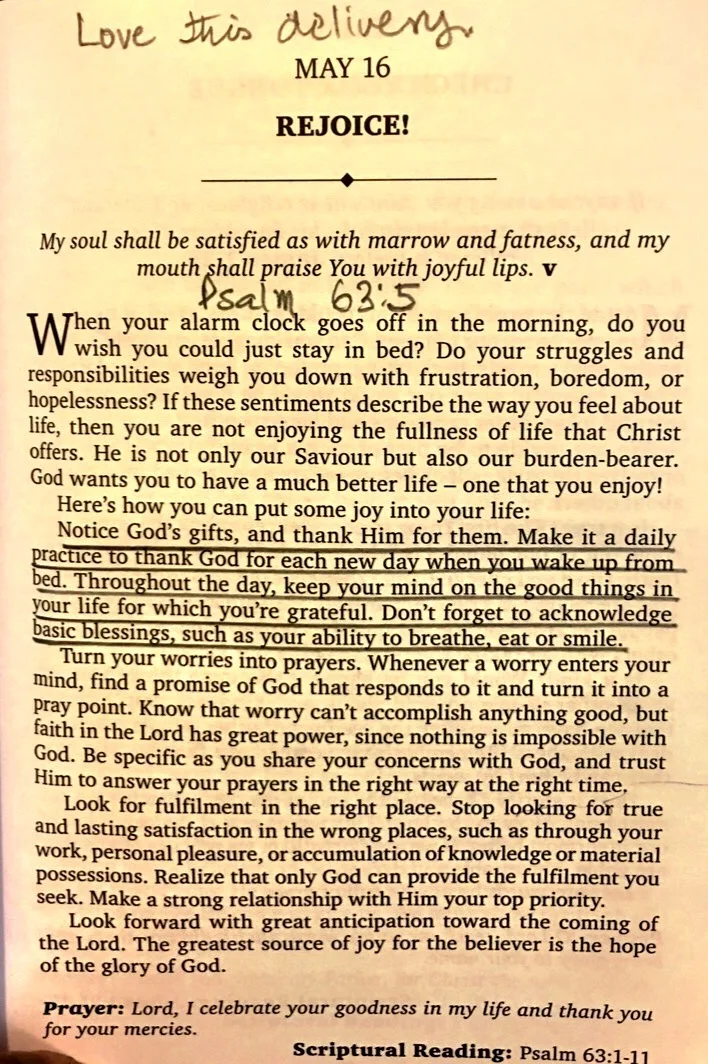 Love this delivery.
MAY 16
REJOICE!
My soul shall be satisfied as with marrow and fatness, and my
mouth shall praise You with joyful lips. v
Psalm 63:5
When your alarm clock goes off in the morning, do you
wish you could just stay in bed? Do your struggles and
responsibilities weigh you down with frustration, boredom, or
hopelessness? If these sentiments describe the way you feel about
life, then you are not enjoying the fullness of life that Christ
offers. He is not only our Saviour but also our burden-bearer.
God wants you to have a much better life – one that you enjoy!
Here's how you can put some joy into your life:
Notice God's gifts, and thank Him for them. Make it a daily
practice to thank God for each new day when you wake up from
bed. Throughout the day, keep your mind on the good things in
your life for which you're grateful. Don't forget to acknowledge
basic blessings, such as your ability to breathe, eat or smile.
Turn your worries into prayers. Whenever a worry enters your
mind, find a promise of God that responds to it and turn it into a
pray point. Know that worry can't accomplish anything good, but
faith in the Lord has great power, since nothing is impossible with
God. Be specific as you share your concerns with God, and trust
Him to answer your prayers in the right way at the right time.
Look for fulfilment in the right place. Stop looking for true
and lasting satisfaction in the wrong places, such as through your
work, personal pleasure, or accumulation of knowledge or material
possessions. Realize that only God can provide the fulfilment you
seek. Make a strong relationship with Him your top priority.
Look forward with great anticipation toward the coming of
the Lord. The greatest source of joy for the believer is the hope
of the glory of God.
Prayer: Lord, I celebrate your goodness in my life and thank you
for your mercies.
Scriptural Reading: Psalm 63:1-11